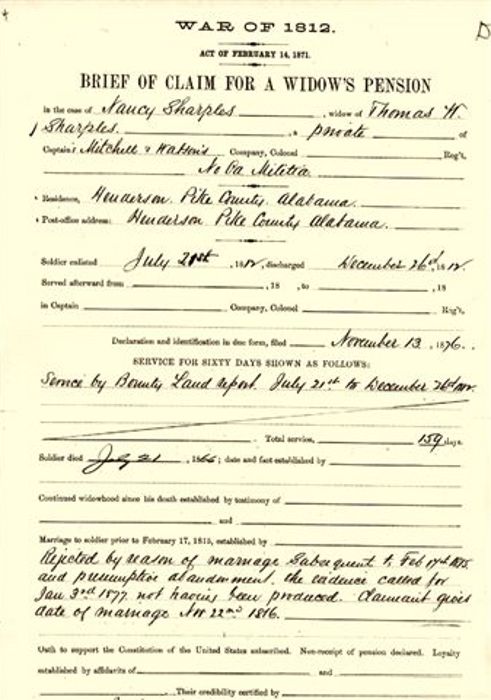 WAR OF 1812.
ACT OF FEBRUARY 14, 1871.
BRIEF OF CLAIM FOR A WIDOW'S PENSION
in the case of Nancy Sharples, widow of Thomas W.
Sharples., a private of
Captain Mitchell & Watson's Company, Colonel Reg't,
Militia
Residence, Henderson. Pike County. Alabama.
Post-office address: Henderson Pike County Alabama.
Soldier enlisted July 21st, 1812, discharged December 26d, 1812.
Served afterward from , 18 , to , 18
in Captain Company, Colonel Reg't,
Declaration and identification in due form, filed November 13, 1876.
SERVICE FOR SIXTY DAYS SHOWN AS FOLLOWS:
Service by Bounty Land report. July 21st to December 26d 1812.
Total service, 159 days.
Soldier died July 21, 1866; date and fact established by
Continued widowhood since his death established by testimony of
and
Marriage to soldier prior to February 17, 1815, established by
Rejected by reason of marriage Subsequent to Feb 17th 1815.
and presumptive abandonment, the evidence called for
Jan 3rd 1877 not having been produced. Claimant gives
date of marriage Nov 22nd 1816.
Oath to support the Constitution of the United States subscribed. Non-receipt of pension declared. Loyalty
established by affidavits of and
Their credibility certified by